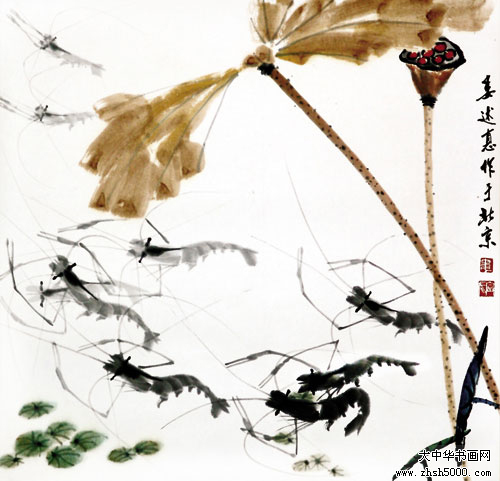 述作于北京
大中华书画网
www.zhsh5000.com